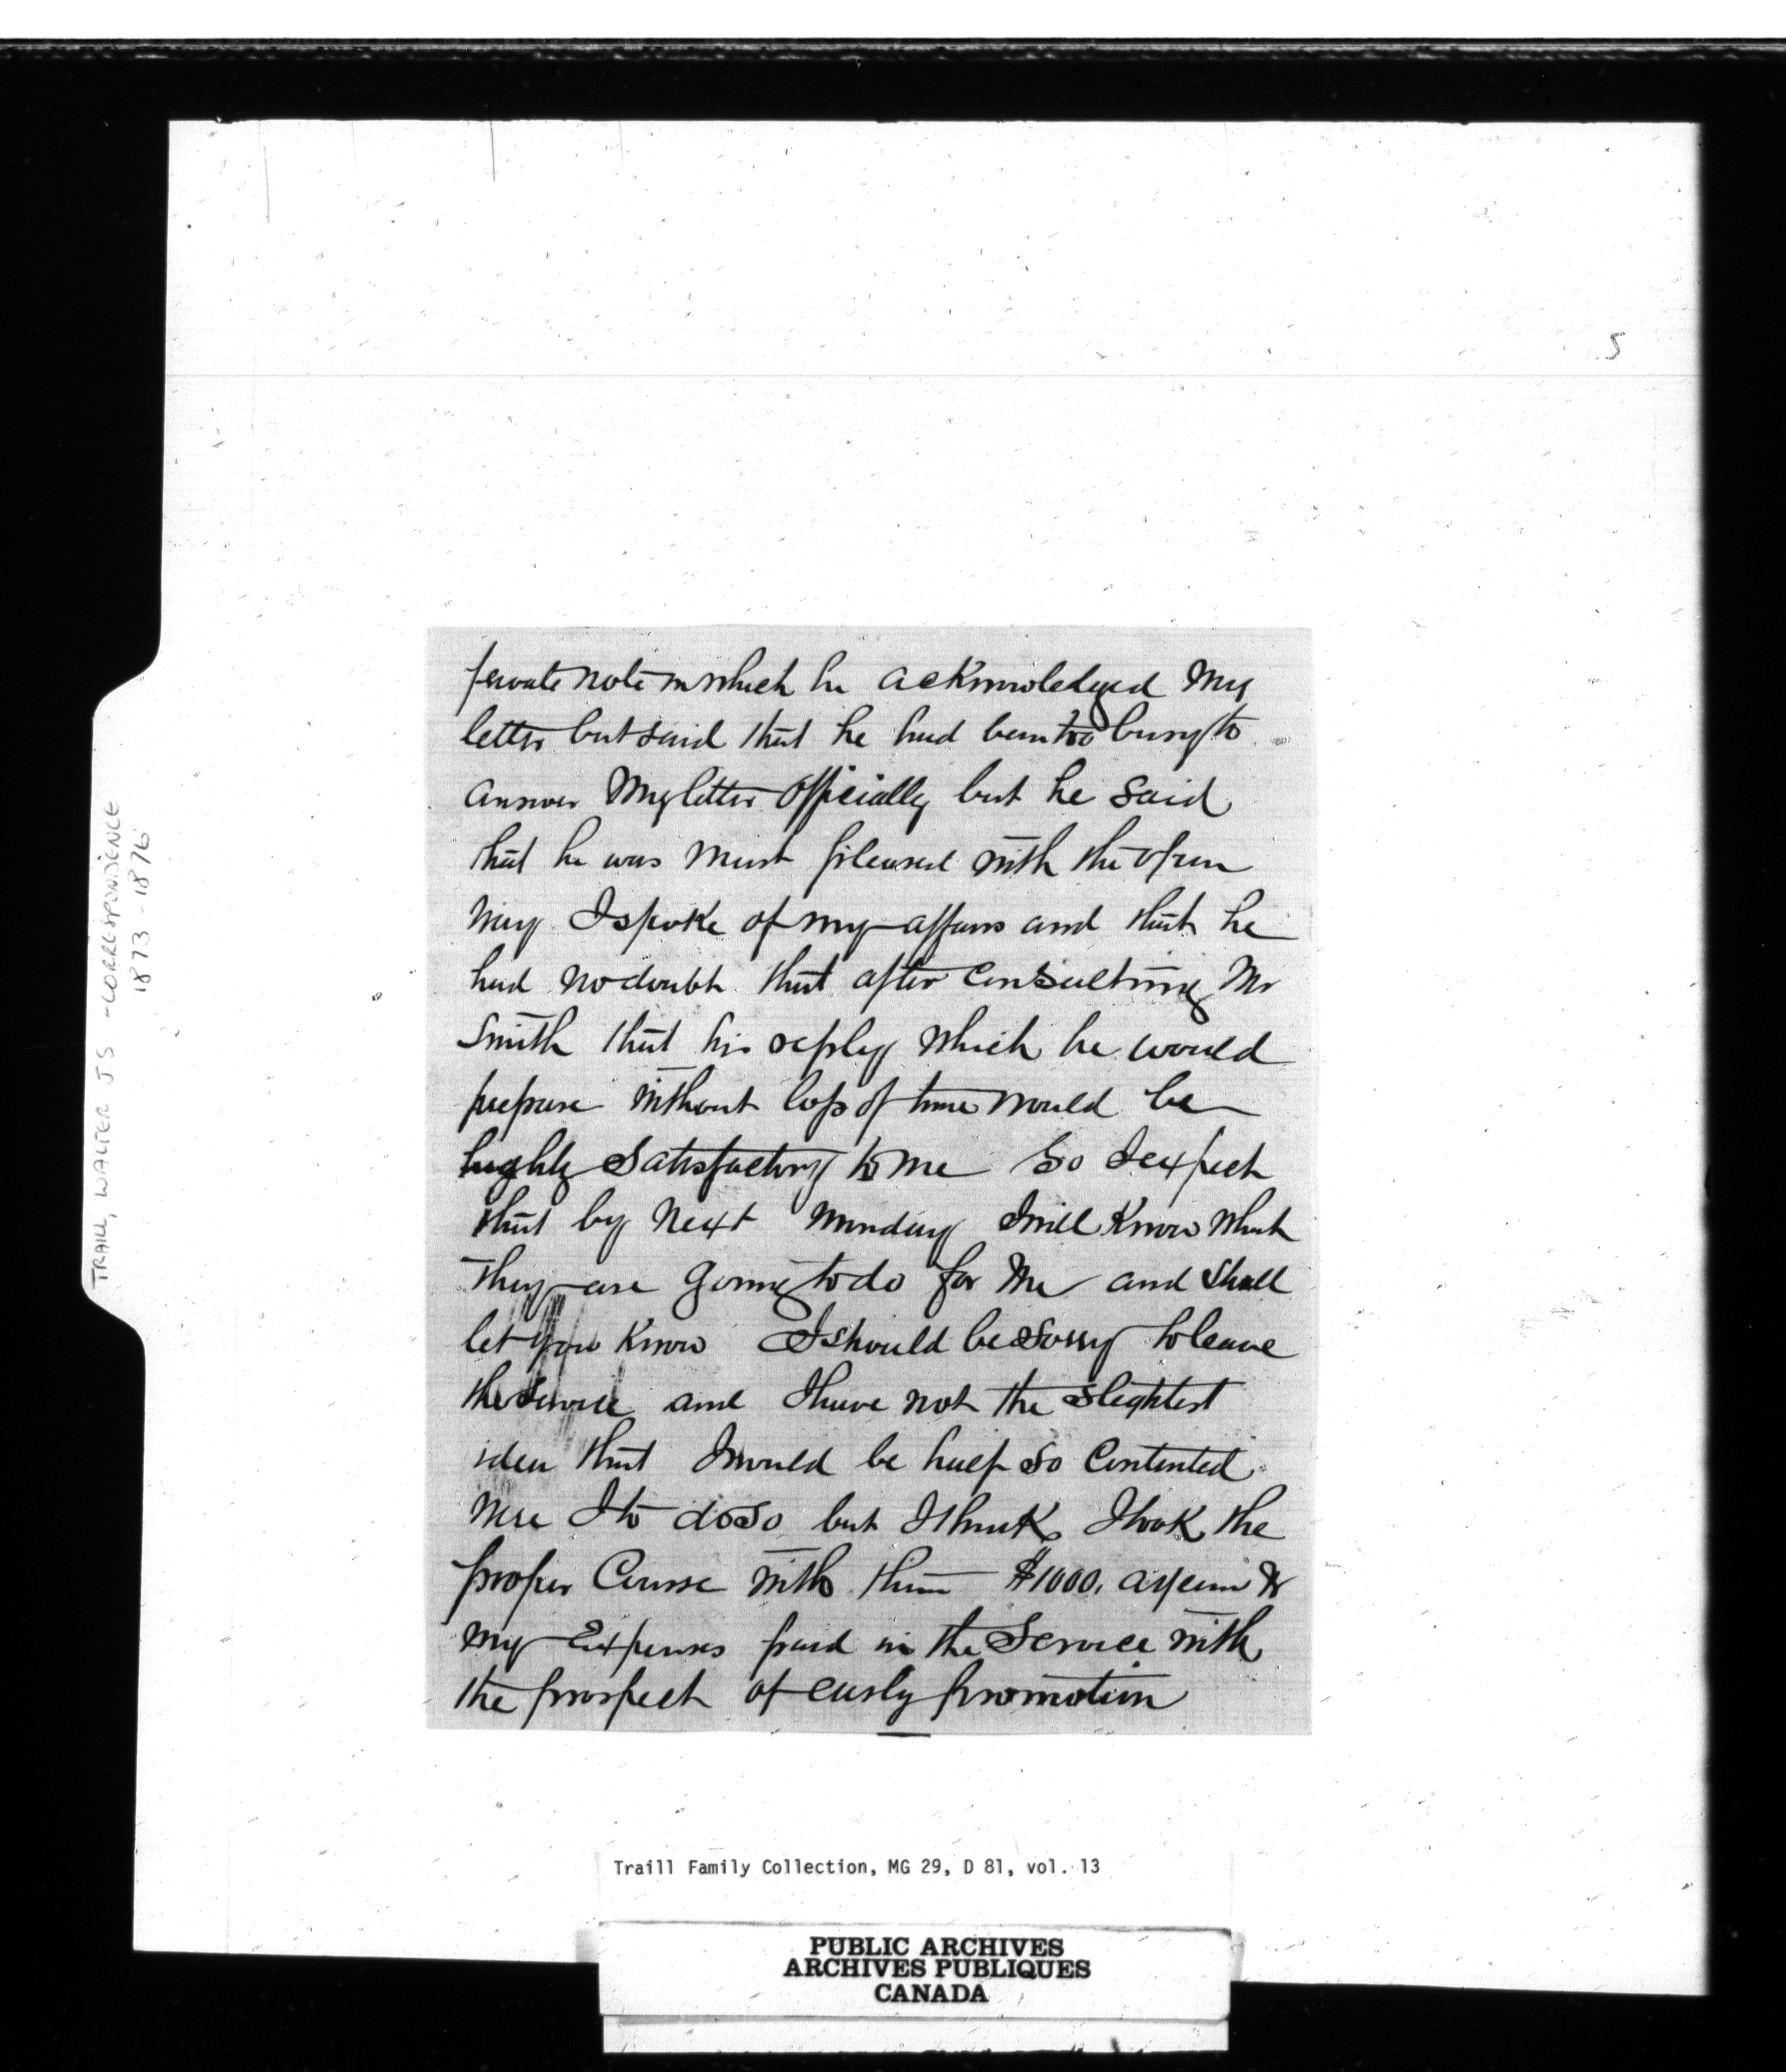 5
private note in which he acknowledged my
letter but said that he had been too busy to
answer my letter officially but he said
that he was most pleased with the open
way I spoke of my affairs and that he
had no doubt that after consulting Mr
Smith that his reply which he would
prepare without loss of time would be
highly satisfactory to me So I expect
that by next Monday I will know what
they are going to do for me and shall
let you know I should be sorry to leave
the Service and I have not the slightest
idea that I would be half so contented
were I to do so but I think I took the
proper Course with them $1000. a year &
my Expenses paid in the Service with
the prospect of early promotion
TRAILL, WALTER J S - CORRESPONDENCE
1873-1876
Traill Family Collection, MG 29, D 81, vol. 13
PUBLIC ARCHIVES
ARCHIVES PUBLIQUES
CANADA